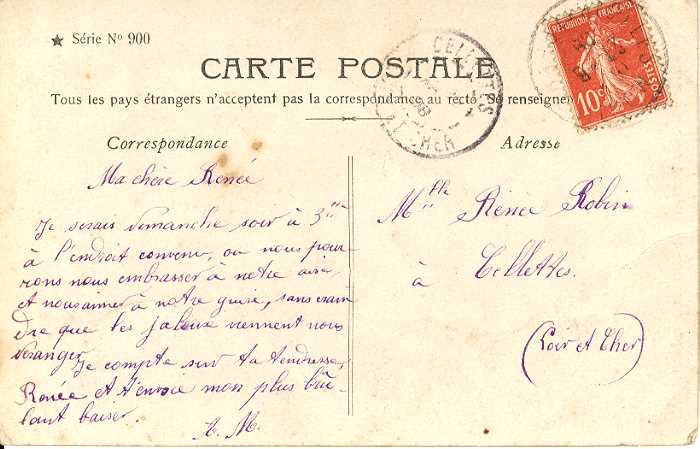 ★ Série Nº 900
CARTE POSTALE
Tous les pays étrangers n'acceptent pas la correspondance au recto. Se renseigner
Correspondance
Adresse
Ma chère Renée
Je serais dimanche soir à 3
à l'endroit convenu, ou nous pour
rons nous embrasser à notre aise,
et nous aimer à notre guise, sans crain
dre que les jaloux viennent nous
déranger.
Je compte sur ta tendresse,
Renée et t'envoie mon plus brû-
lant baiser.
A. M.
Melle Renée Robin
à Cellettes.
(Loir et Cher)
CELLETTES
CHER
REPUBLIQUE FRANÇAISE
POSTES
10c